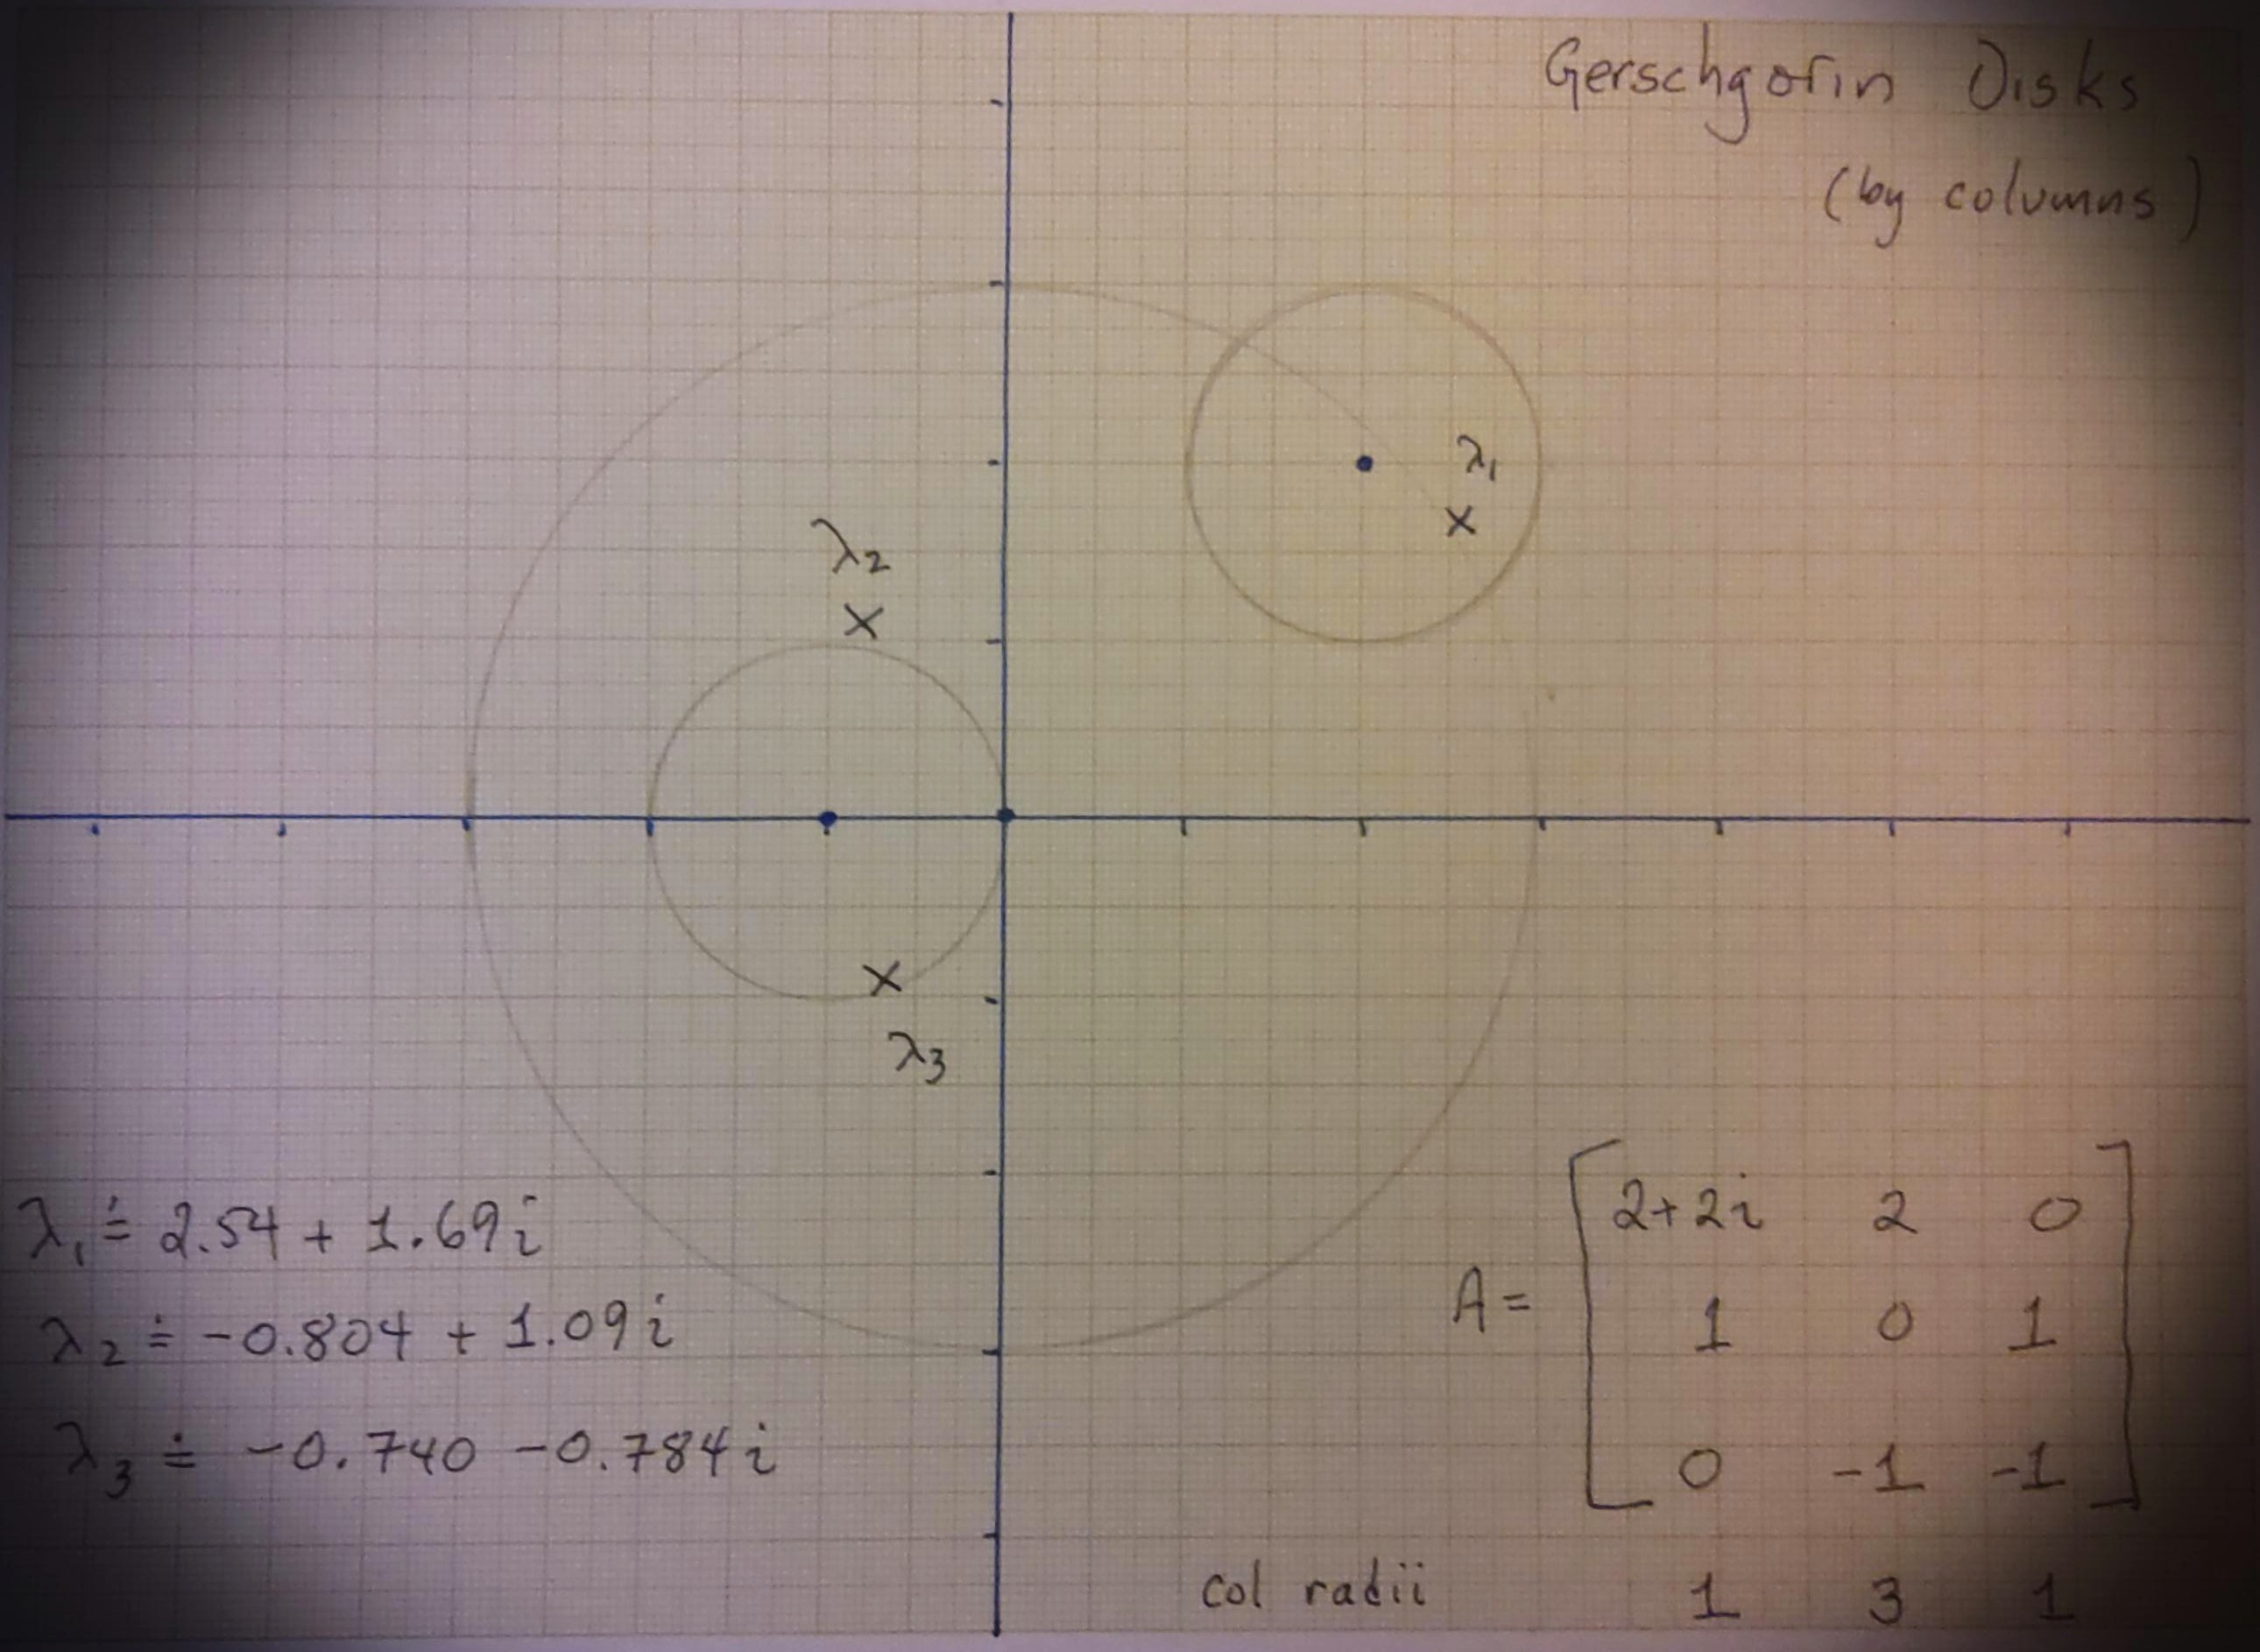 Gerschgorin Disks
(by columns)
λ₁
λ₂
λ₃
λ₁ ≐ 2.54 + 1.69i
λ₂ ≐ -0.804 + 1.09i
λ₃ ≐ -0.740 -0.784i
2+2i 2 0
A= 1 0 1
0 -1 -1
col radii 1 3 1